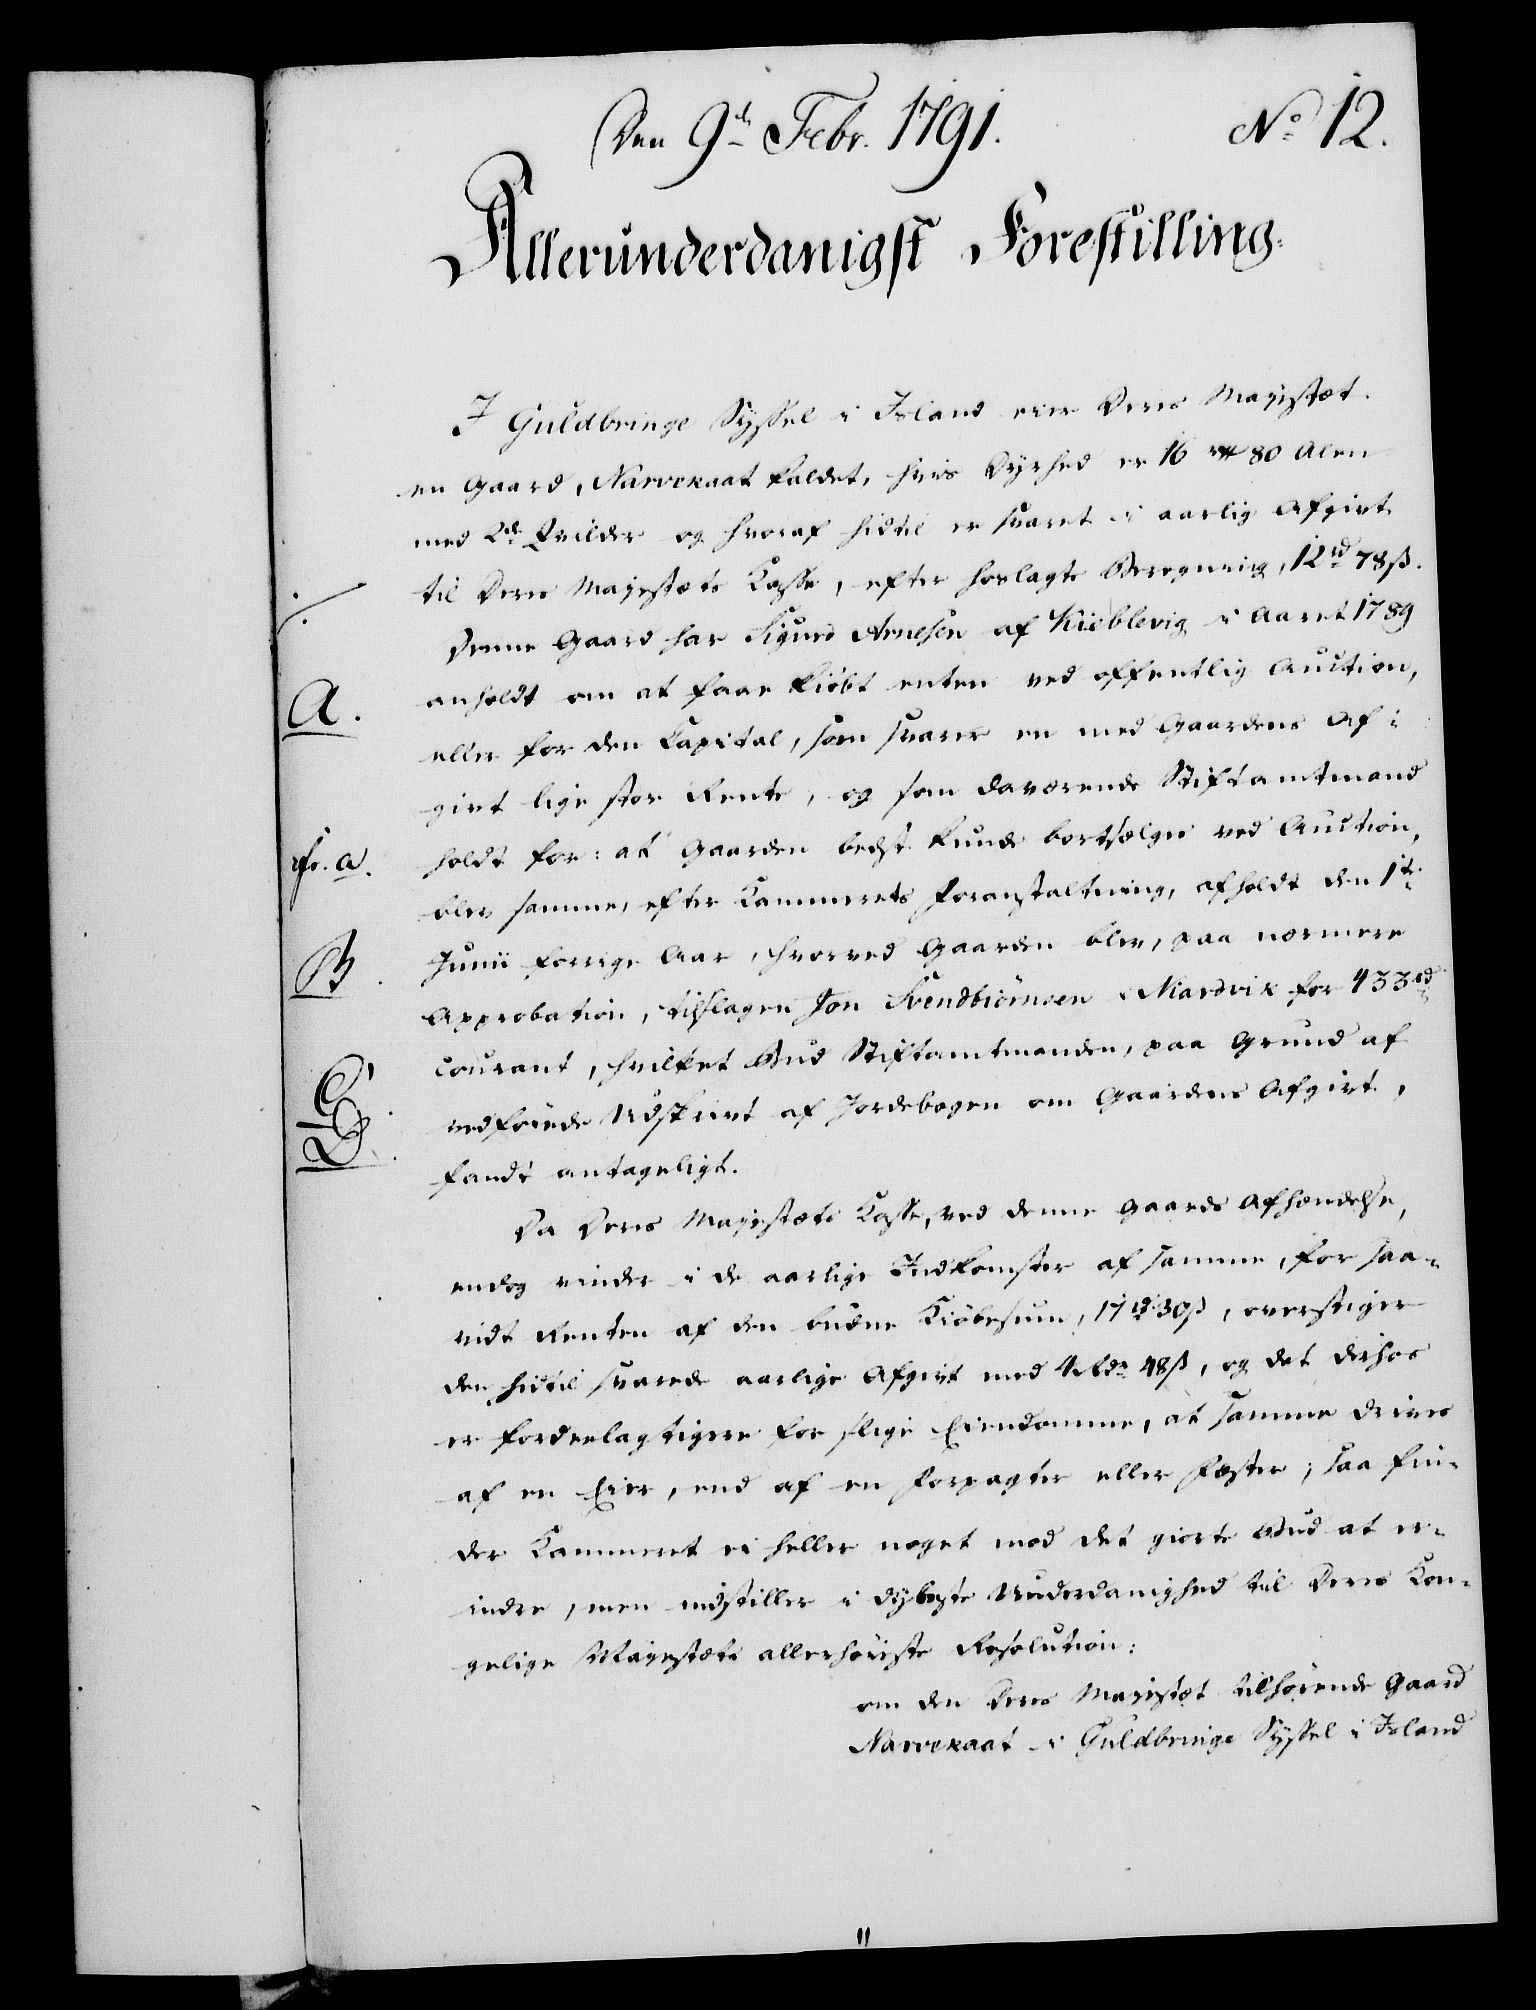 Den 9de Febr. 1791.
No 12.
Allerunderdanigst Forestilling.
I Guldbringe Syssel i Island eier Deres Majestæt
en Gaard, Narvekaat kaldet, hvis Dyrhed er 16 80 Alen
med 2de Qvilder og hvoraf hidtil er svaret i aarlig Afgivt
til Deres Majestæts Casse, efter hoslagte Beregning, 12 rd 78 ß.
Denne Gaard har Sigurd Arnesen af Kieblevig i Aaret 1789
A.
anholdt om at faae kiøbt enten ved offentlig Auction,
eller for den Capital, som svarer en med Gaardens Af-
givt lige stor Rente, og som daværende Stiftamtmand
fr. a.
holdt for: at Gaarden bedst kunde bortsælges ved Auction,
blev samme, efter Kammerets Foranstaltning, afholdt den 1te
B.
Junii forrige Aar, hvorved Gaarden blev, paa nærmere
Approbation, tilslagen Jon Svendbiørnsen i Niardvik for 433 rd
C.
courant, hvilket Bud Stiftamtmanden, paa Grund af
D.
vedføiede Udskrivt af Jordebogen om Gaardens Afgivt,
fandt antageligt.
Da Deres Majestæts Casse, ved denne Gaards Afhændelse,
endog vinder i de aarlige Indkomster af samme, for saa-
vidt Renten af den budne Kiøbesum, 17 rd 30 ß, overstiger
den hidtil svarede aarlige Afgivt med 4 Rdr 48 ß, og det derhos
er fordeelagtigere for slige Eiendomme, at samme drives
af en Eier, end af en Forpagter eller Fæster; saa fin-
der Kammeret ei heller noget mod det giorte Bud at er-
indre, men indstiller i dybeste Underdanighed til Deres Kon-
gelige Majestæts allerhøieste Resolution:
om den Deres Majestæt tilhørende Gaard
Narvekaat i Guldbringe Syssel i Island
11